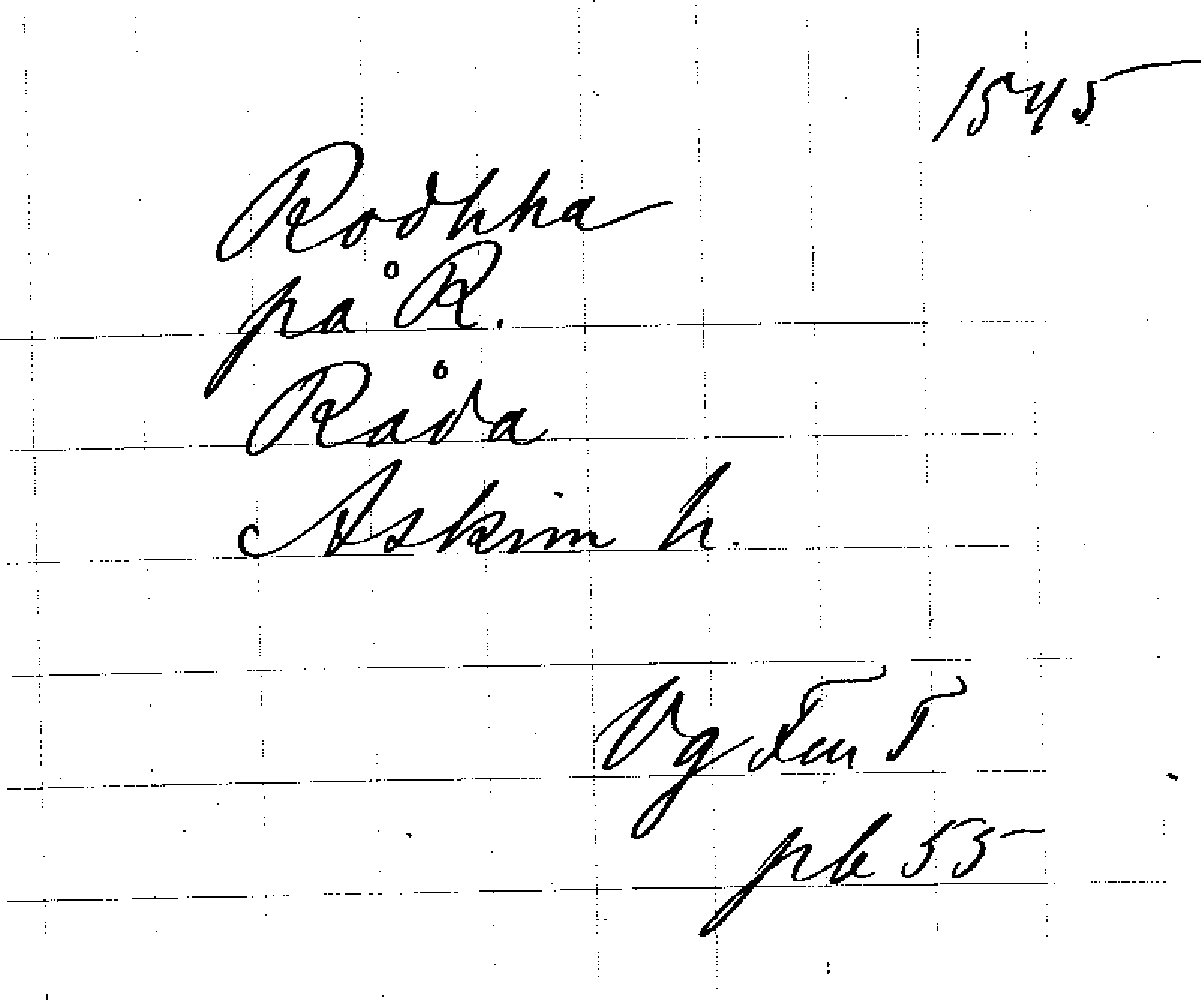 1545
Rodhha
på R.
Råda
Askim h.
Vg Fem 5
pb 55